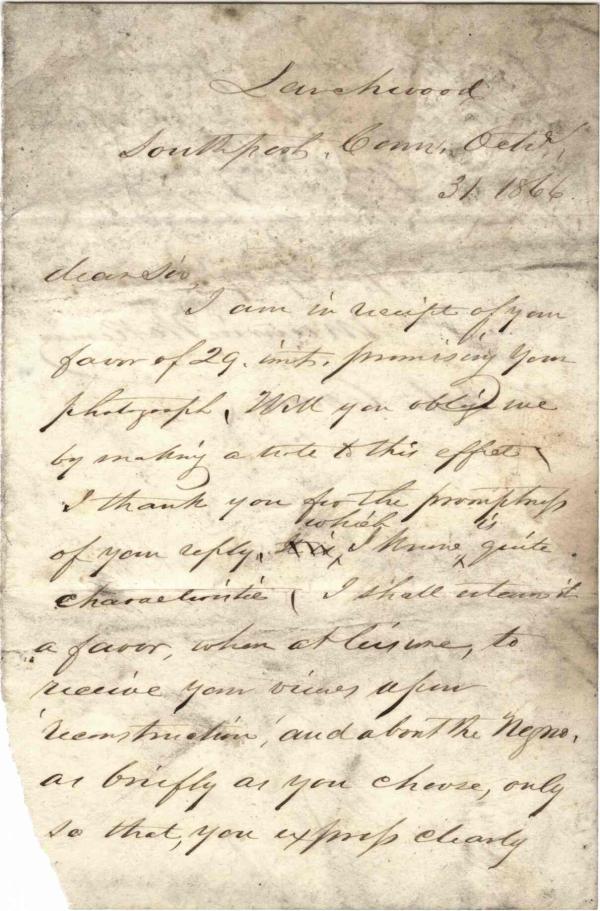 Larchwood
Southport, Conn. Octr.
31 1866
dear Sir,
I am in receipt of your
favor of 29. inst. promising your
photograph, Will you oblige me
by making a note to this effect
I thank you for the promptness
of your reply, which I know, is quite
characteristic, I shall esteem it
a favor, when at leisure, to
receive your views upon
'reconstruction', and about the Negro,
as briefly as you choose, only
so that, you express clearly